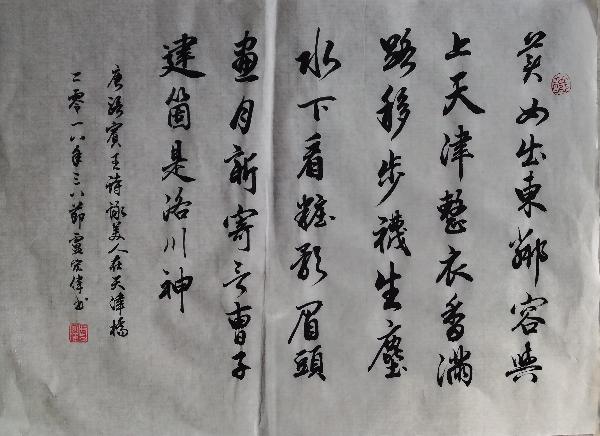 美女出東鄰容與
上天津整衣香滿
路移步襪生塵
水下看粧影眉頭
畫月新寄言曹子
建箇是洛川神
唐駱賓王詩詠美人在天津橋
二零一八年三八節宏偉书